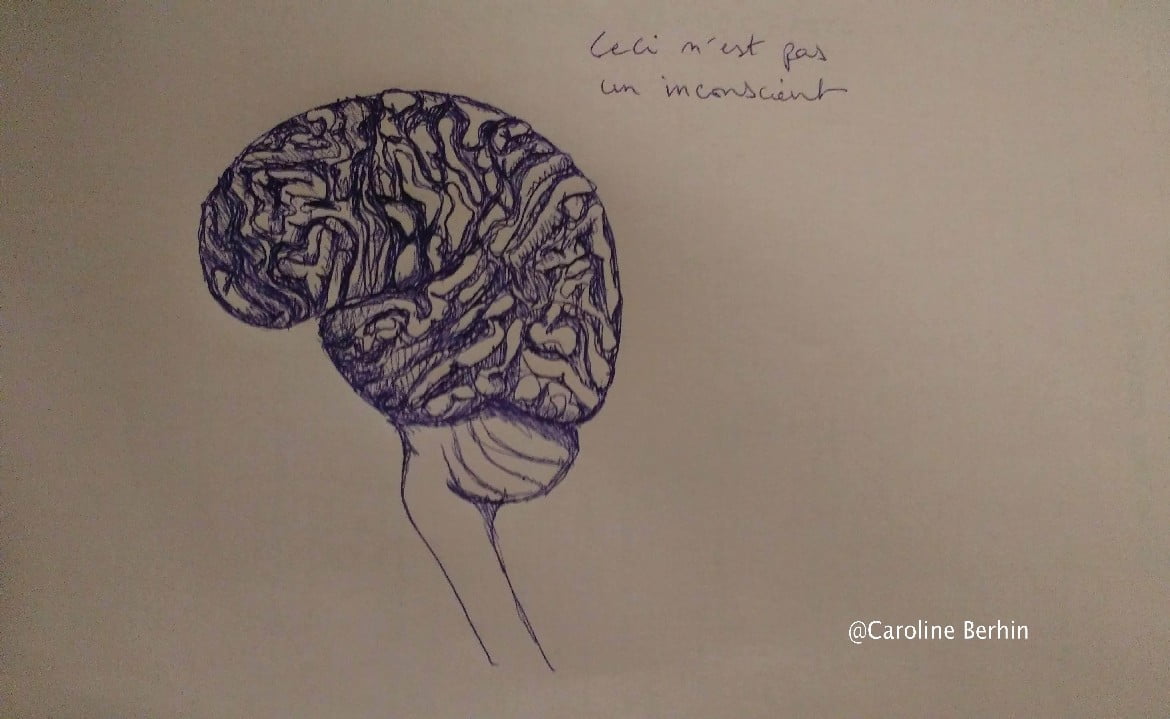 Ceci n'est pas
un inconscient
@Caroline Berhin